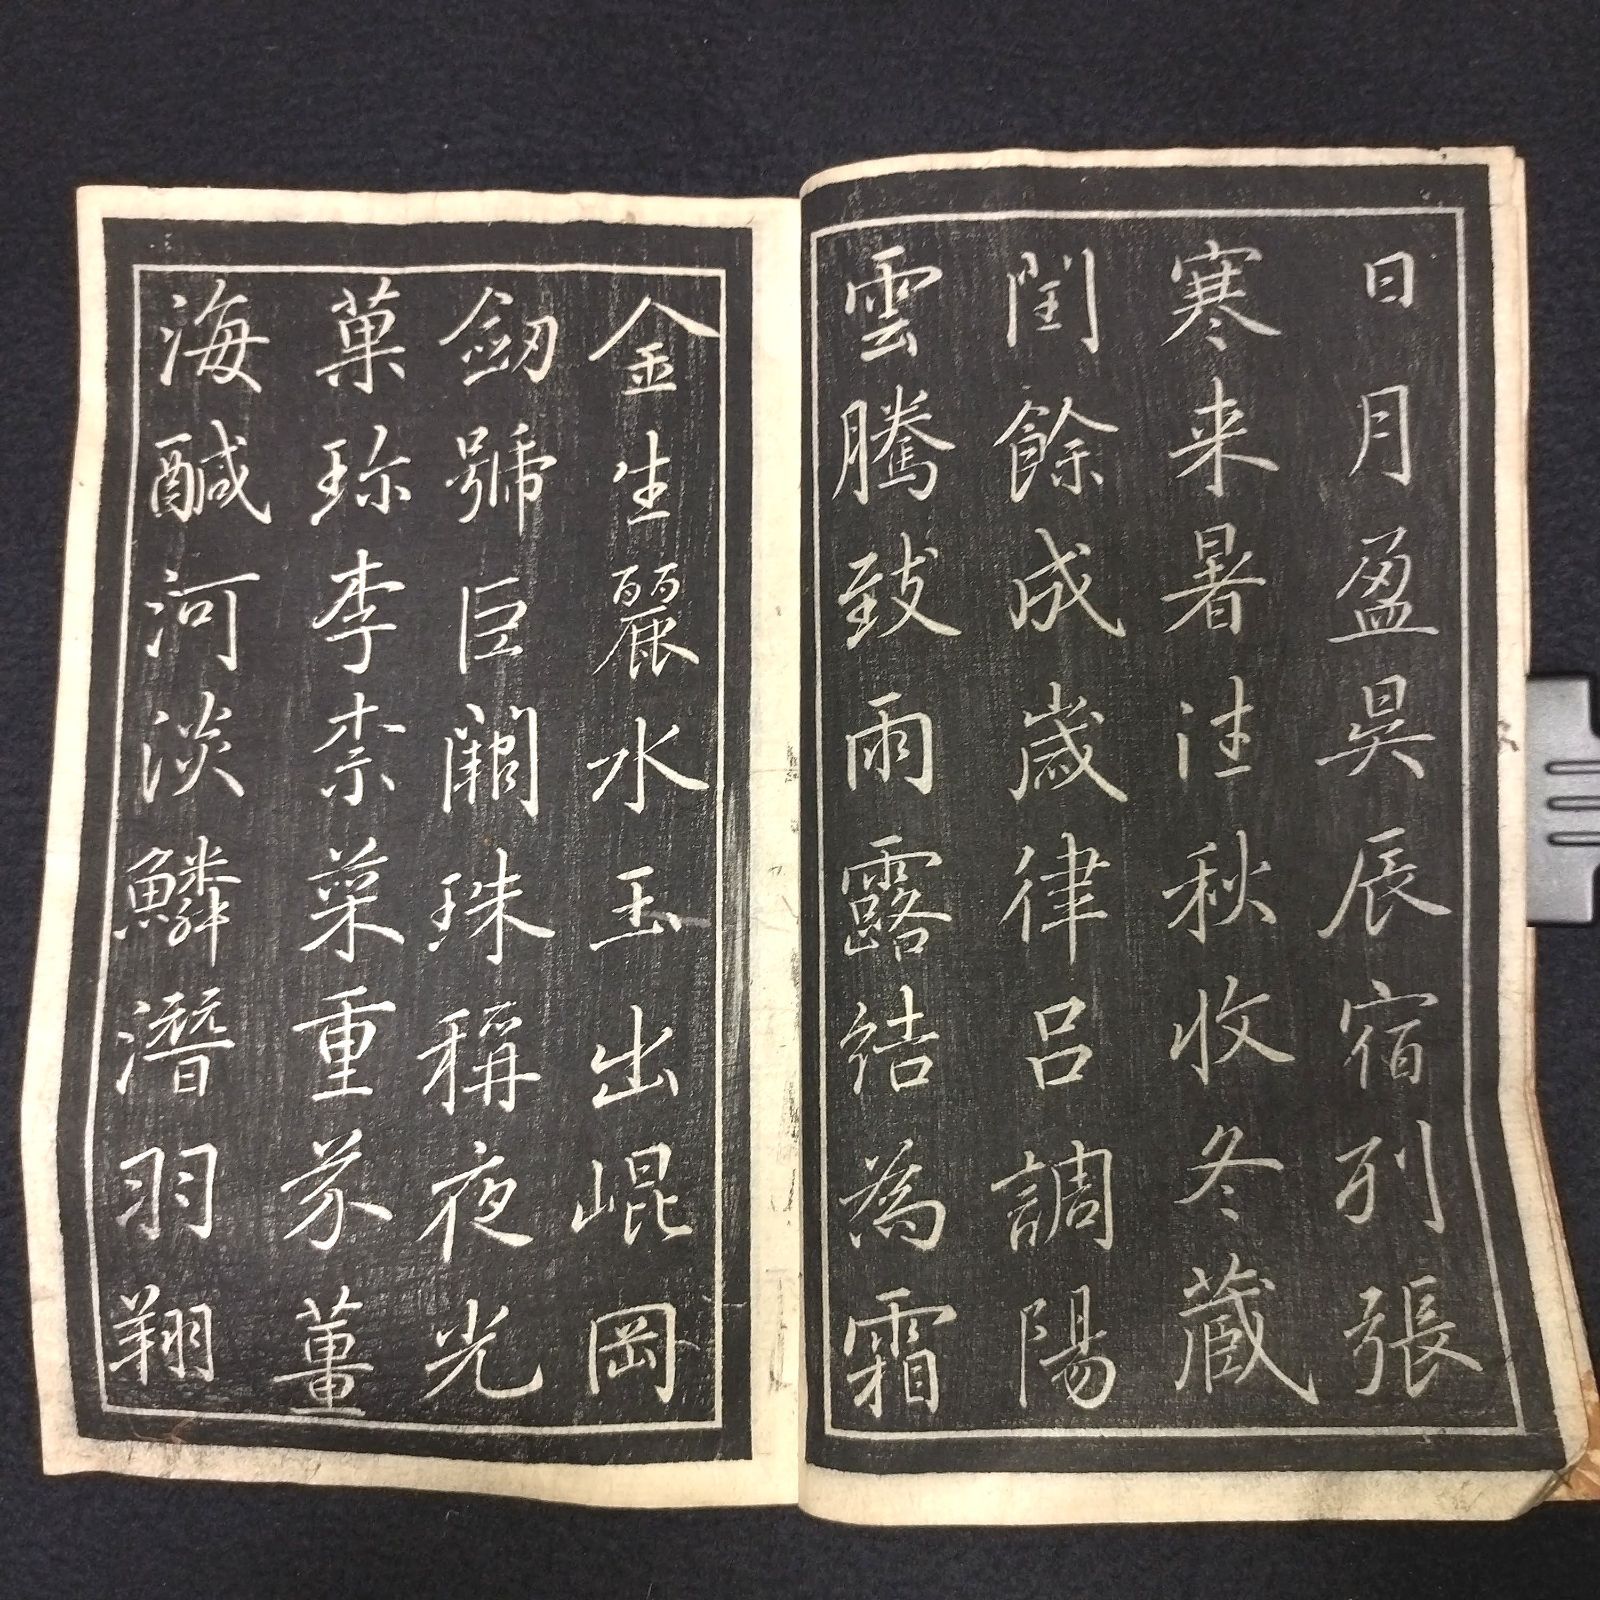 日月盈昃辰宿列張
寒来暑往秋收冬蔵
閏餘成歳律呂調陽
雲騰致雨露結為霜
金生麗水玉出崐岡
劒號巨闕珠稱夜光
菓珎李柰菜重芥薑
海醎河淡鱗潛羽翔